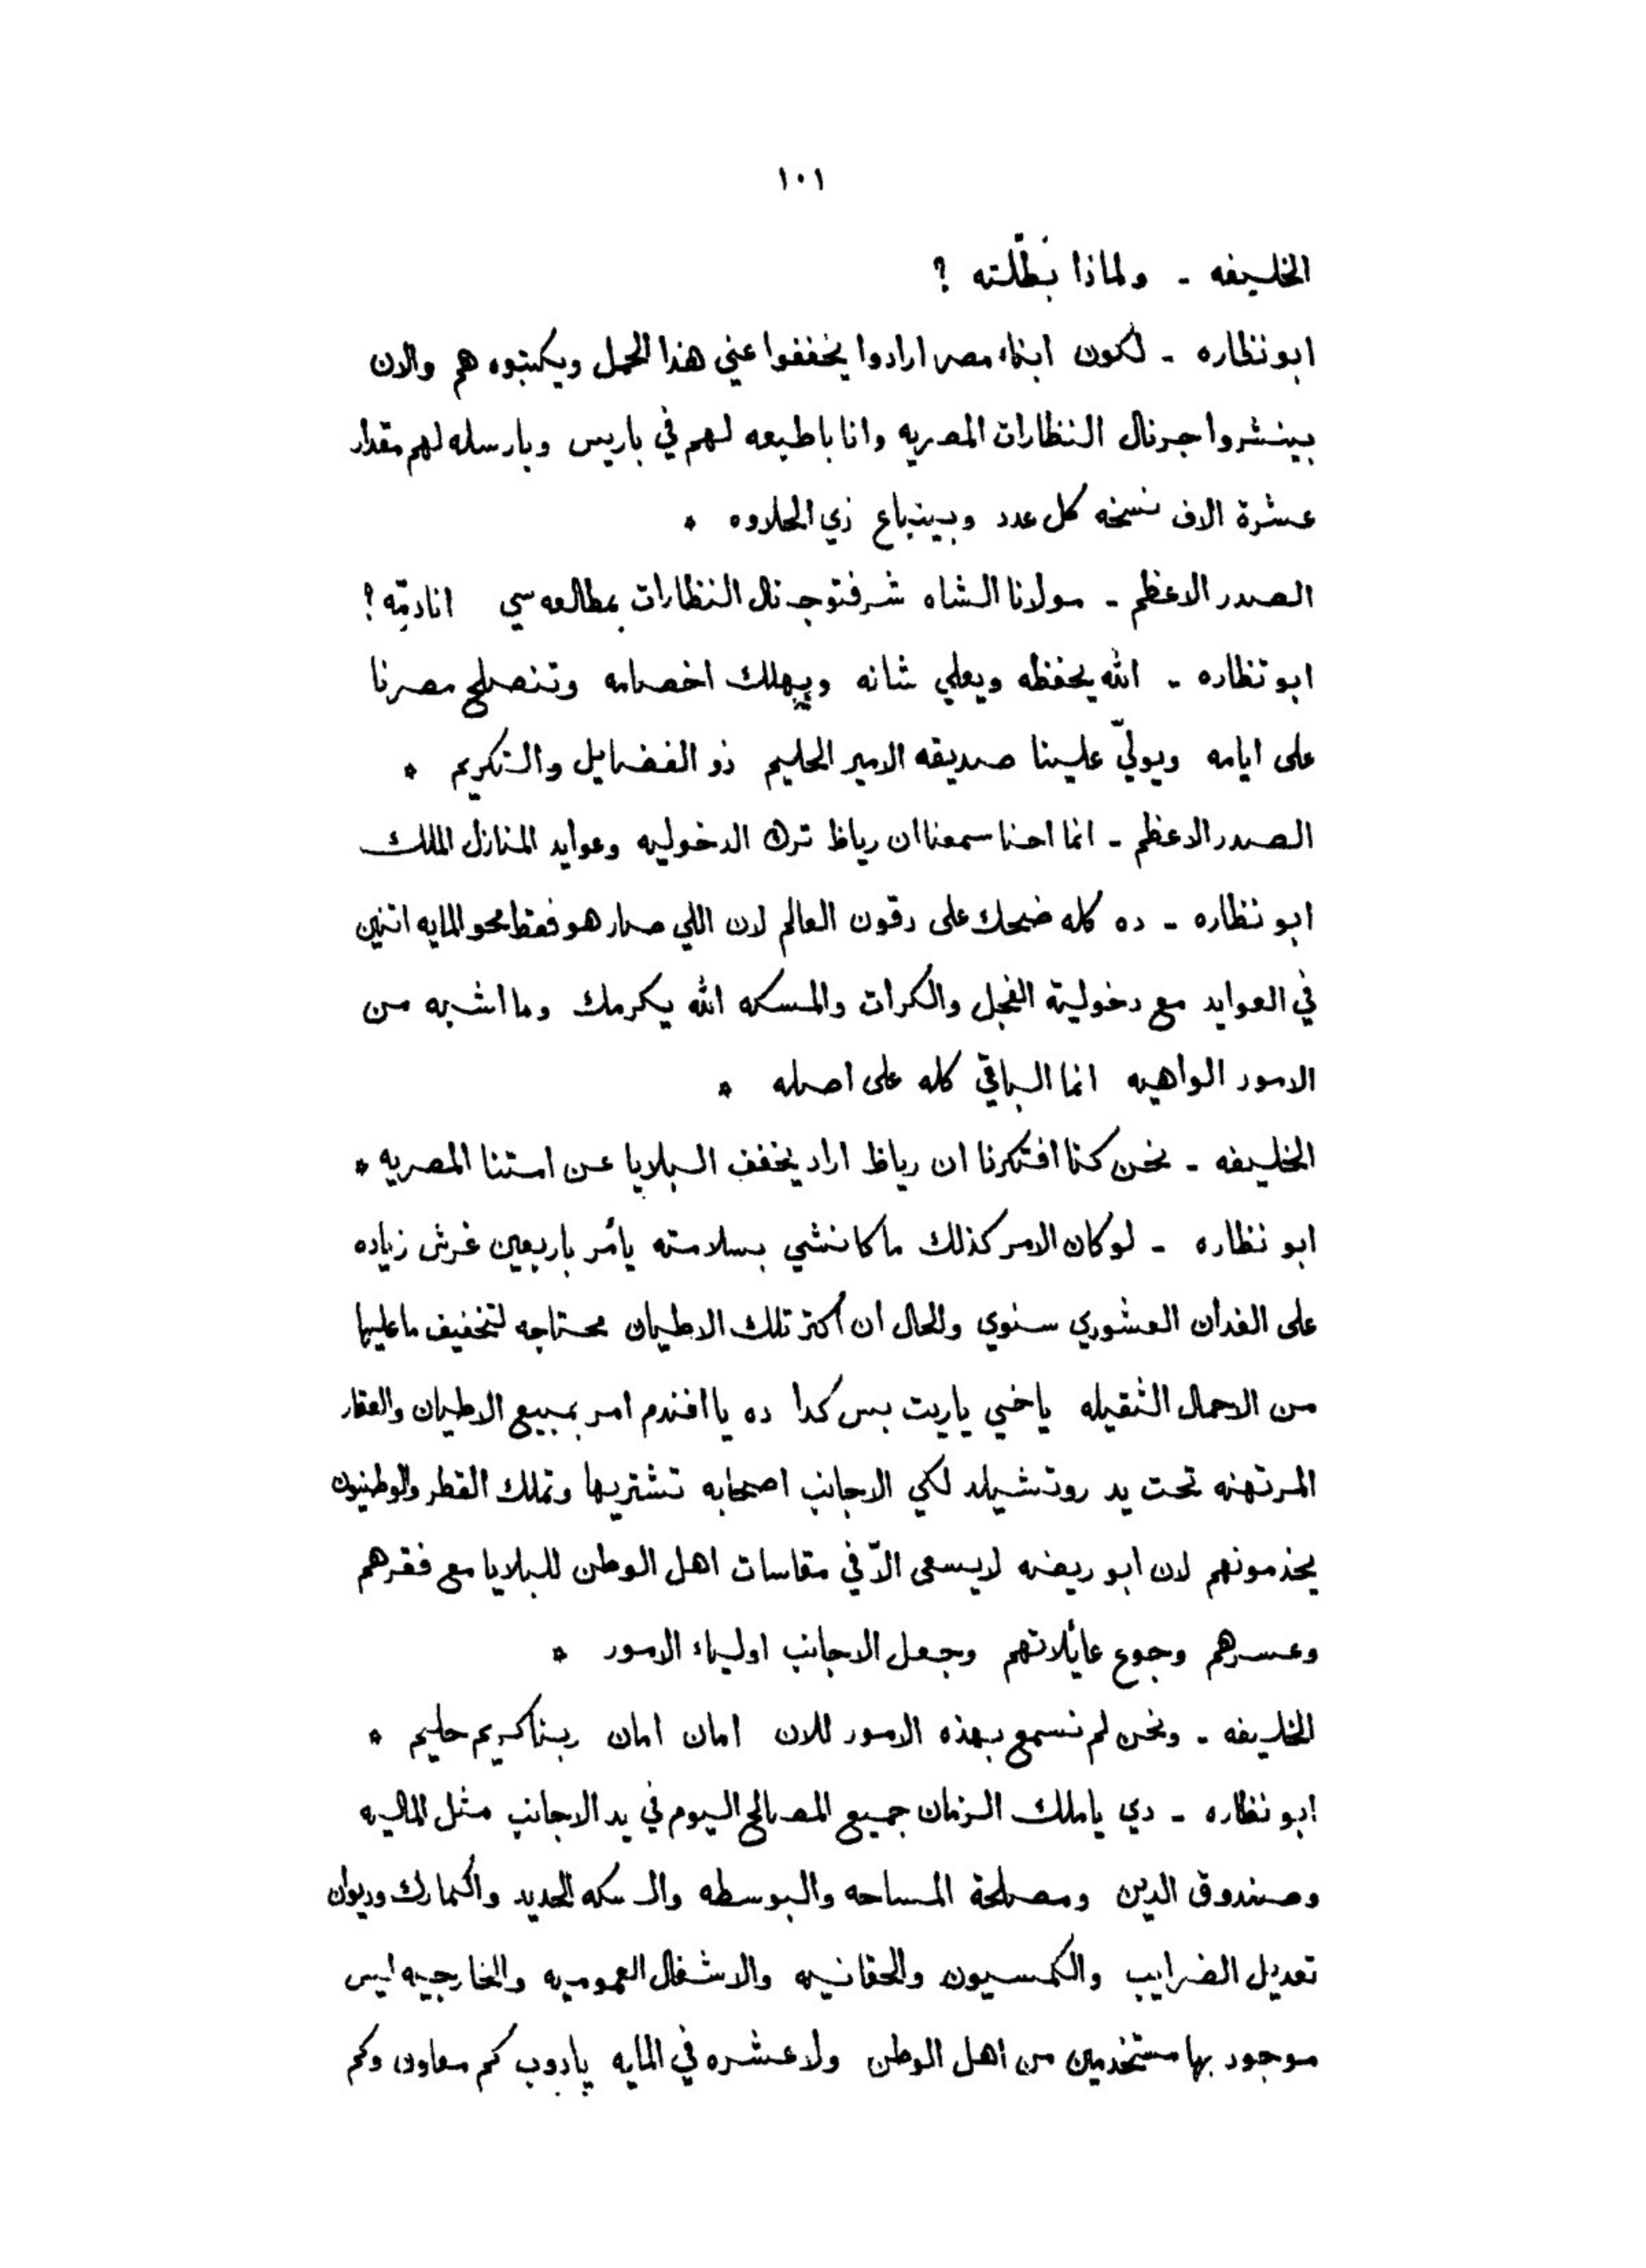 ١٠١
الخليفه - ولماذا بَطّلته ؟
ابو نظاره - لكون ابناء مصر ارادوا يخففوا عني هذا الحمل ويكتبوه هم والان
بينشروا جرنال النظارات المصريه وانا باطبعه لهم في باريس وبارسله لهم مقدار
عشرة الاف نسخه كل عدد وبينباع زي الحلاوه *
الصدر الاعظم - مولانا الشاه شرفتو جرنال النظارات بمطالعه سي
ابو نظاره - الله يحفظه ويعلي شانه ويهلك اخصامه وتنصلح مصرنا
على ايامه ويوليّ علينا صديقه الامير الحليم ذو الفضايل والتكريم *
الصدر الاعظم - انما احنا سمعنا ان رياظ ترك الدخوليه وعوايد المنازل الملك
ابو نظاره - ده كله ضحك على دقون العالم لان اللي صار هو فقط محو المايه اتنين
في العوايد مع دخولية الفجل والكرات والمسكه الله يكرمك وما اشبه من
الامور الواهيه انما الباقي كله على اصله *
الخليفه - نحن كنا افتكرنا ان رياظ اراد يخفف البلايا عن امتنا المصريه *
ابو نظاره - لو كان الامر كذلك ما كانشي بسلامته يأمر باربعين غرش زياده
على الفدان العشوري سنوي والحال ان اكتر تلك الاطيان محتاجه لتخفيف ما عليها
من الاحمال الثقيله ياخي ياريت بس كدا ده يا افندم امر بمبيع الاطيان والعقار
المرتهنه تحت يد روتشيلد لكي الاجانب اصحابه تشتريها وتملك القطر والوطنيون
يخدمونهم لان ابو ريضه لا يسعى الاّ في مقاسات اهل الوطن للبلايا مع فقرهم
وعسرهم وجوع عائلاتهم وجعل الاجانب اولياء الامور *
الخليفه - ونحن لم نسمع بهذه الامور للان امان امان ربنا كريم حليم *
ابو نظاره - دي ياملك الزمان جميع المصالح اليوم في يد الاجانب مثل الماليه
وصندوق الدين ومصلحة المساحه والبوسطه والسكه الحديد والكمارك وديوان
تعديل الضرايب والكمسيون والحقانيه والاشغال العموميه والخارجيه ليس
موجود بها مستخدمين من اهل الوطن ولا عشره في المايه يادوب كم معاون وكم